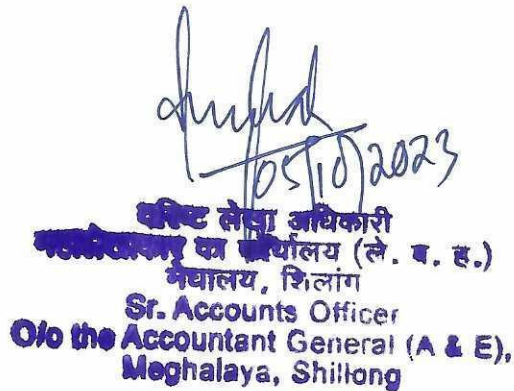 05/10/2023
वरिष्ट लेखा अधिकारी
महालेखाकार का कार्यालय (ले. व. ह.)
मेघालय, शिलांग
Sr. Accounts Officer
O/o the Accountant General (A & E),
Meghalaya, Shillong